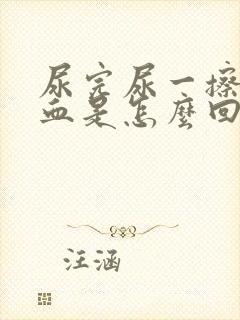 尿完尿一擦
血是怎麼回
汪涵